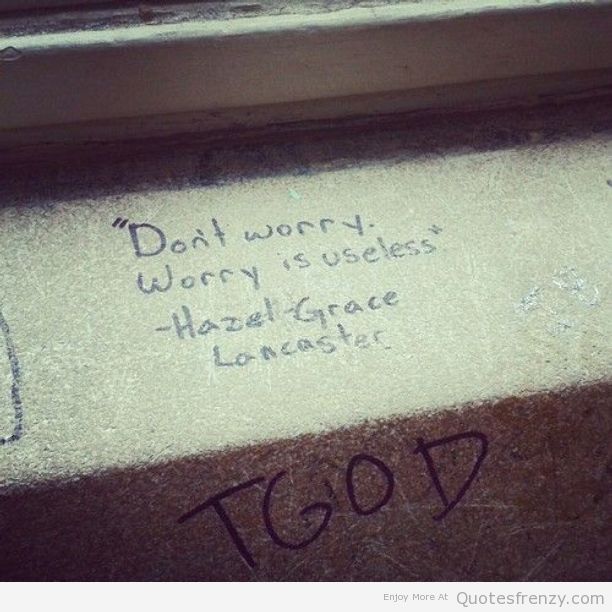 "Don't worry.
Worry is useless"
-Hazel-Grace
Lancaster
TGOD
Enjoy More At Quotesfrenzy.com